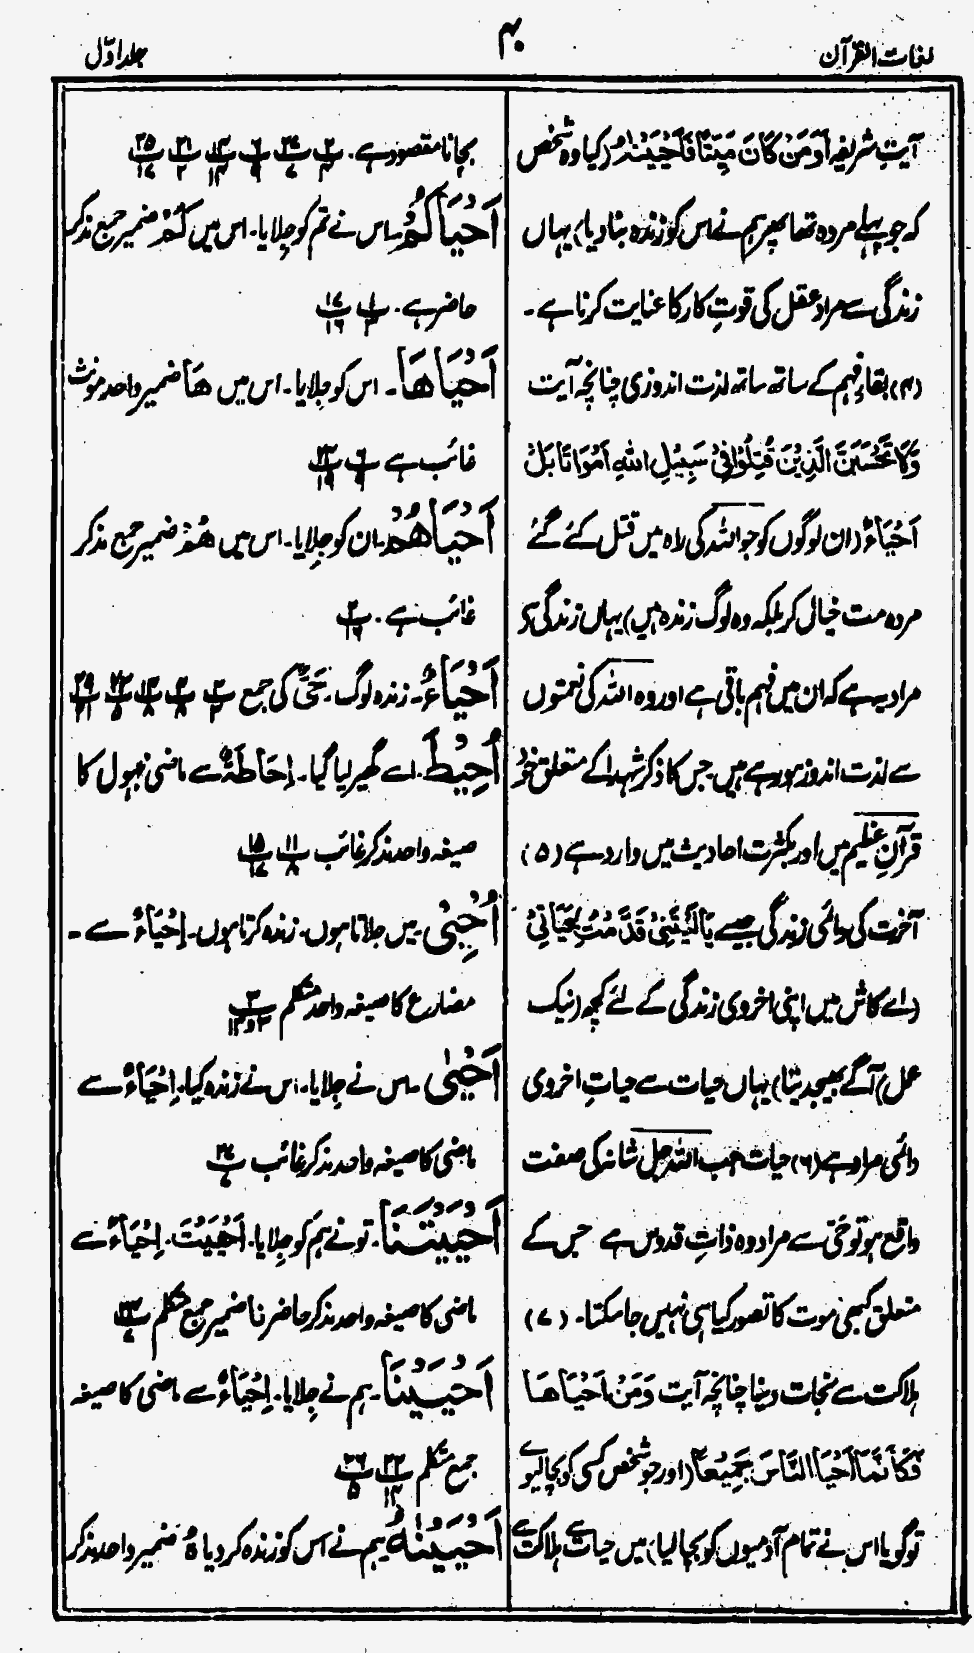 لغات القرآن
۴۰
جلد اوّل
آیتِ شریفہ اَوَمَنْ كَانَ مَيْتًا فَاَحْيَيْنٰهُ (کیا وہ شخص
کہ جو پہلے مردہ تھا پھر ہم نے اس کو زندہ بنا دیا) یہاں
زندگی سے مراد عقل کی قوتِ کار کا عنایت کرنا ہے۔
(۴) بقاءِ فہم کے ساتھ ساتھ لذت اندوزی چنانچہ آیت
وَلَا تَحْسَبَنَّ الَّذِيْنَ قُتِلُوْا فِيْ سَبِيْلِ اللّٰهِ اَمْوَاتًا بَلْ
اَحْيَاءٌ (ان لوگوں کو جو اللہ کی راہ میں قتل کئے گئے
مردہ مت خیال کر بلکہ وہ لوگ زندہ ہیں) یہاں زندگی سے
مراد یہ ہے کہ ان میں فہم باقی ہے اور وہ اللہ کی نعمتوں
سے لذت اندوز ہو رہے ہیں جس کا ذکر شہدا کے متعلق خود
قرآنِ عظیم میں اور بکثرت احادیث میں وارد ہے (۵)
آخرت کی دائمی زندگی جیسے يَا لَيْتَنِيْ قَدَّمْتُ لِحَيَاتِيْ
(اے کاش میں اپنی اخروی زندگی کے لئے کچھ (نیک
عمل) آگے بھیجدیتا) یہاں حیات سے حیاتِ اخروی
دائمی مراد ہے (۶) حیات جب اللہ جل شانہ کی صفت
واقع ہو تو حَيّ سے مراد وہ ذاتِ قدوس ہے جس کے
متعلق کبھی موت کا تصور کیا ہی نہیں جا سکتا۔ (۷)
ہلاکت سے نجات دینا چنانچہ آیت وَمَنْ اَحْيَاهَا
فَكَاَنَّمَا اَحْيَا النَّاسَ جَمِيْعًا (اور جو شخص کسی کو بچالیوے
تو گویا اس نے تمام آدمیوں کو بچا لیا) میں حیات سے ہلاکت سے
بچانا مقصود ہے۔
اَحْيَاكُمْ۔ اس نے تم کو جِلایا۔ اس میں كُمْ ضمیر جمع مذکر
حاضر ہے۔
اَحْيَاهَا۔ اس کو جِلایا۔ اس میں هَا ضمیر واحد مونث
غائب ہے
اَحْيَاهُمْ۔ ان کو جِلایا۔ اس میں هُمْ ضمیر جمع مذکر
غائب ہے۔
اَحْيَاءٌ۔ زندہ لوگ۔ حَيٌّ کی جمع
اُحِيْطَ۔ اسے گھیر لیا گیا۔ اِحَاطَةٌ سے ماضی مجہول کا
صیغہ واحد مذکر غائب
اُحْيِيْ۔ میں جلاتا ہوں۔ زندہ کرتا ہوں۔ اِحْيَاءٌ سے۔
مضارع کا صیغہ واحد متکلم
اَحْيٰى۔ اس نے جِلایا۔ اس نے زندہ کیا۔ اِحْيَاءٌ سے
ماضی کا صیغہ واحد مذکر غائب
اَحْيَيْتَنَا۔ تو نے ہم کو جِلایا۔ اَحْيَيْتَ۔ اِحْيَاءٌ سے
ماضی کا صیغہ واحد مذکر حاضر نا ضمیر جمع متکلم
اَحْيَيْنَا۔ ہم نے جِلایا۔ اِحْيَاءٌ سے ماضی کا صیغہ
جمع متکلم
اَحْيَيْنٰهُ ہم نے اس کو زندہ کر دیا هُ ضمیر واحد مذکر